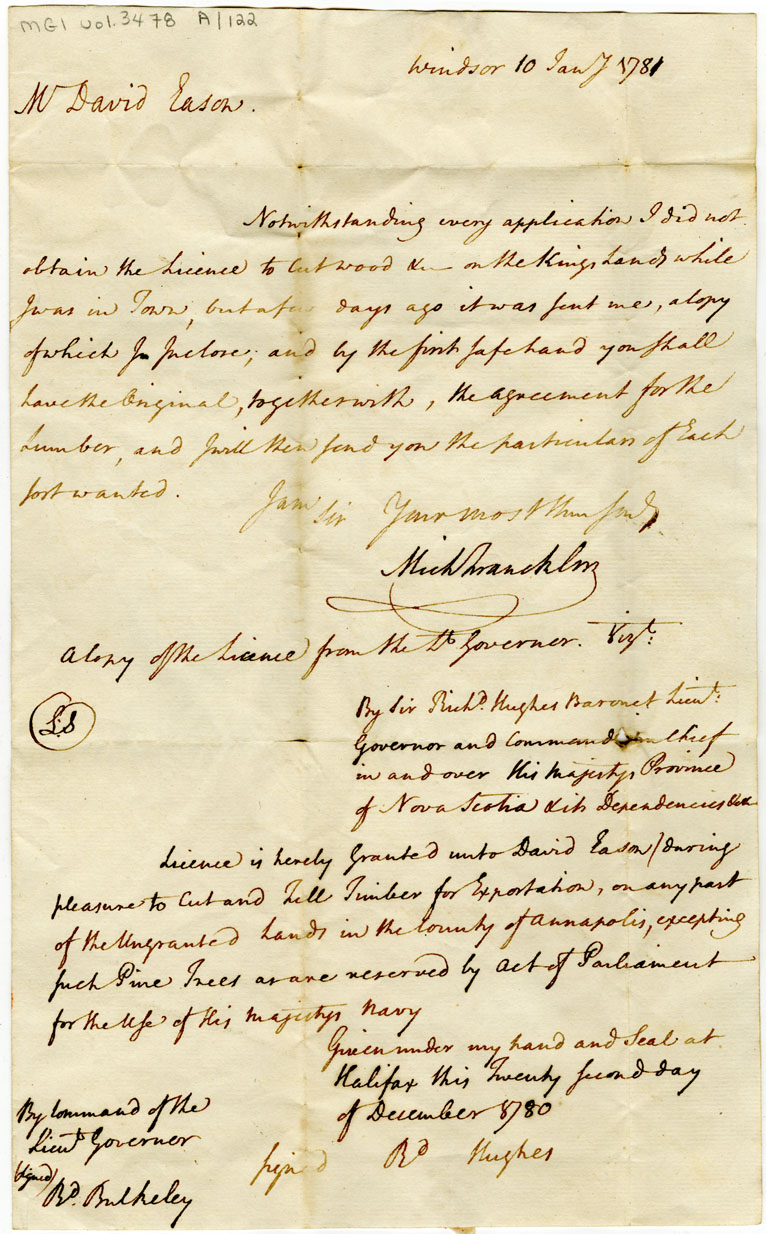 MG1 vol. 3478 A/122
Windsor 10 Jany 1781
Mr David Eason.
Notwithstanding every application I did not
obtain the Licence to Cut wood &c on the Kings Lands while
I was in Town, but a few days ago it was sent me, a Copy
of which I Inclose; and by the first safe hand you shall
have the Original, together with, the agreement for the
Lumber, and I will then send you the particulars of Each
sort wanted.
I am Sir Your most Hum Servt
Mich Francklin
a Copy of the Licence from the Lt Governor. Vizt:
L:S
By Sir Richd. Hughes Baronet Lieut:
Governor and Command in Chief
in and over His Majestys Province
of Nova Scotia & its Dependencies &c &c
Licence is hereby Granted unto David Eason / during
pleasure to Cut and Fell Timber for Exportation, on any part
of the Ungranted Lands in the County of Annapolis, excepting
such Pine Trees as are reserved by Act of Parliament
for the Use of His Majestys Navy
Given under my hand and Seal at
Halifax this Twenty second day
of December 1780
signed Rd Hughes
By Command of the
Lieut Governor
(signed)
Rd. Bulkeley